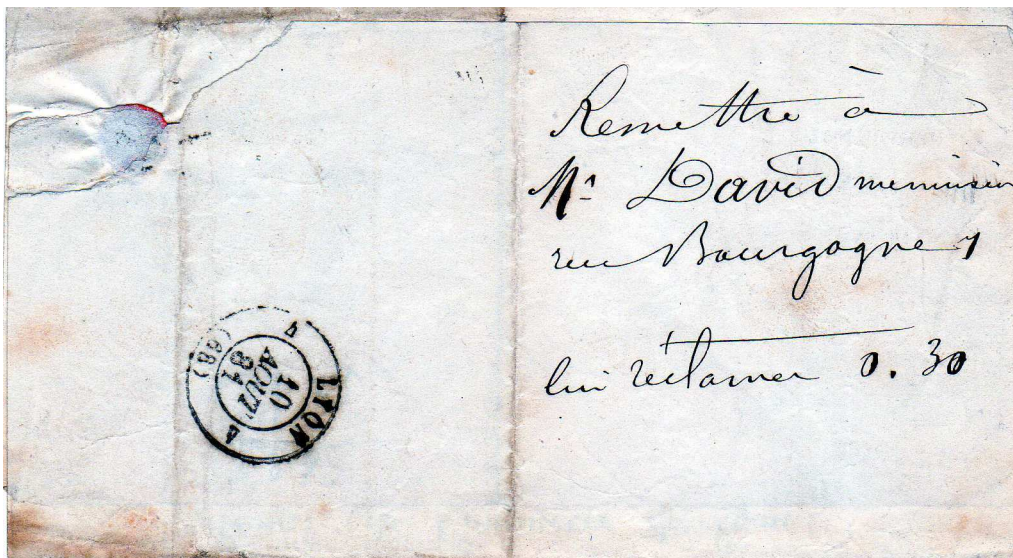 Remettre à
Mr David menuisier
rue Bourgogne 7
lui réclamer 0.30
LYON
4
10
AOUT
81
(68)